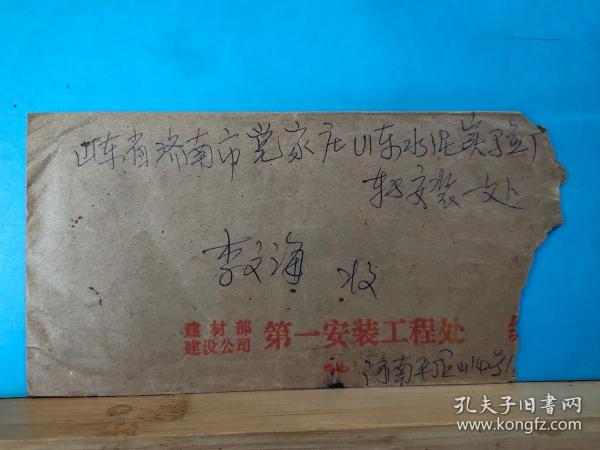 山东省济南市党家庄山东水泥实验厂
转安装一处
李文海 收
建材部
建设公司
第一安装工程处
地址：
济南
孔夫子旧书网
www.kongfz.com